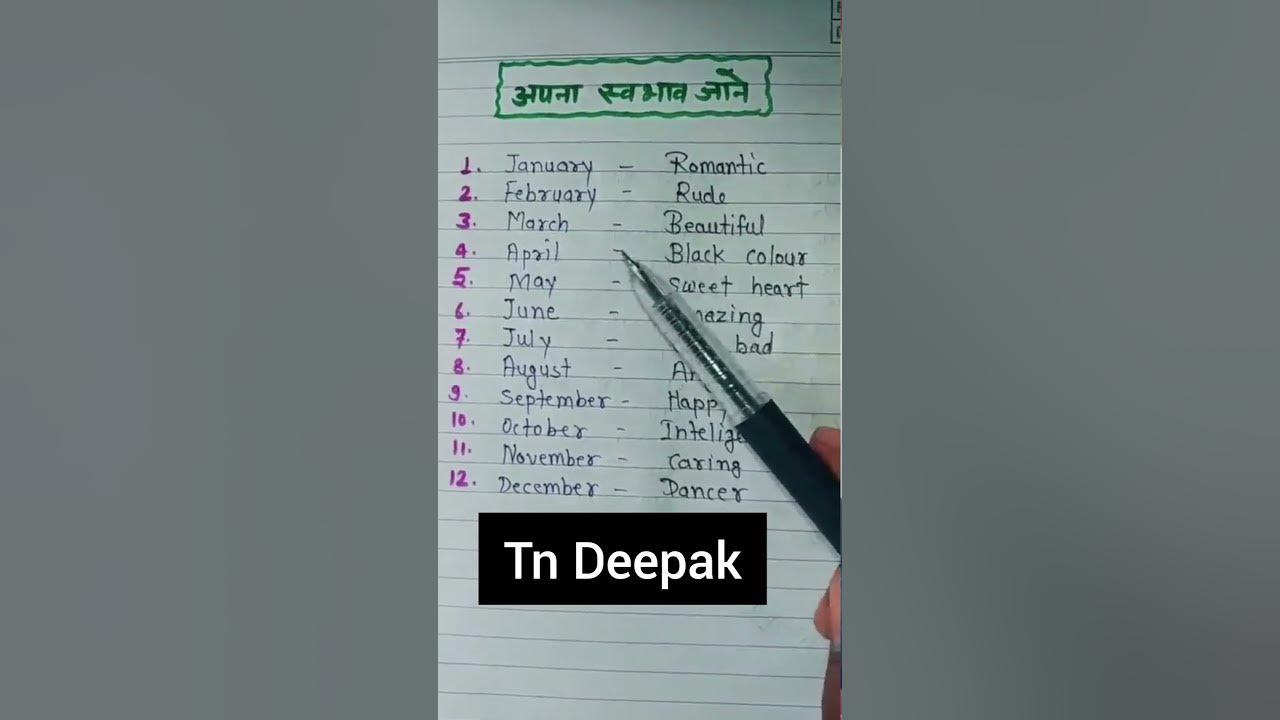 अपना स्वभाव जाने
1. January - Romantic
2. February - Rude
3. March - Beautiful
4. April - Black colour
5. May - Sweet heart
6. June -
7. July - bad
8. August -
9. September -
10. October -
11. November - Caring
12. December - Dancer
Tn Deepak